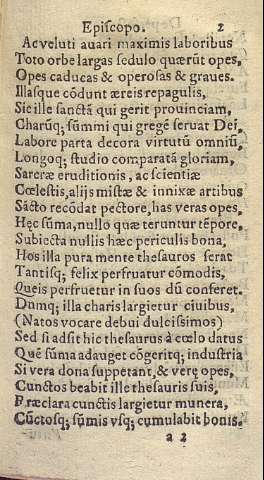 Episcopo. 2
Ac veluti auari maximis laboribus
Toto orbe largas sedulo quærūt opes,
Opes caducas & operosas & graues.
Illasque cōdunt æreis repagulis,
Sic ille sanctā qui gerit prouinciam,
Charūq; sūmmi qui gregē seruat Dei,
Labore parta decora virtutū omniū,
Longoq; studio comparatā gloriam,
Sarcræ eruditionis, ac scientiæ
Cœlestis, alijs mistæ & innixæ artibus
Sācto recōdat pectore, has veras opes,
Hęc sūma, nullo quæ teruntur tēpore,
Subiecta nullis hæc periculis bona,
Hos illa pura mente thesauros ferat
Tantisq; felix perfruatur cōmodis,
Queis perfruetur in suos dū conferet.
Dumq; illa charis largietur ciuibus,
(Natos vocare debui dulcissimos)
Sed si adsit hic thesaurus à cœlo datus
Quē sūma adauget cōgeritq; industria
Si vera dona suppetant, & verę opes,
Cunctos beabit ille thesauris suis,
Præclara cunctis largietur munera,
Cūctosq; sūmis vsq; cumulabit bonis.
a 2